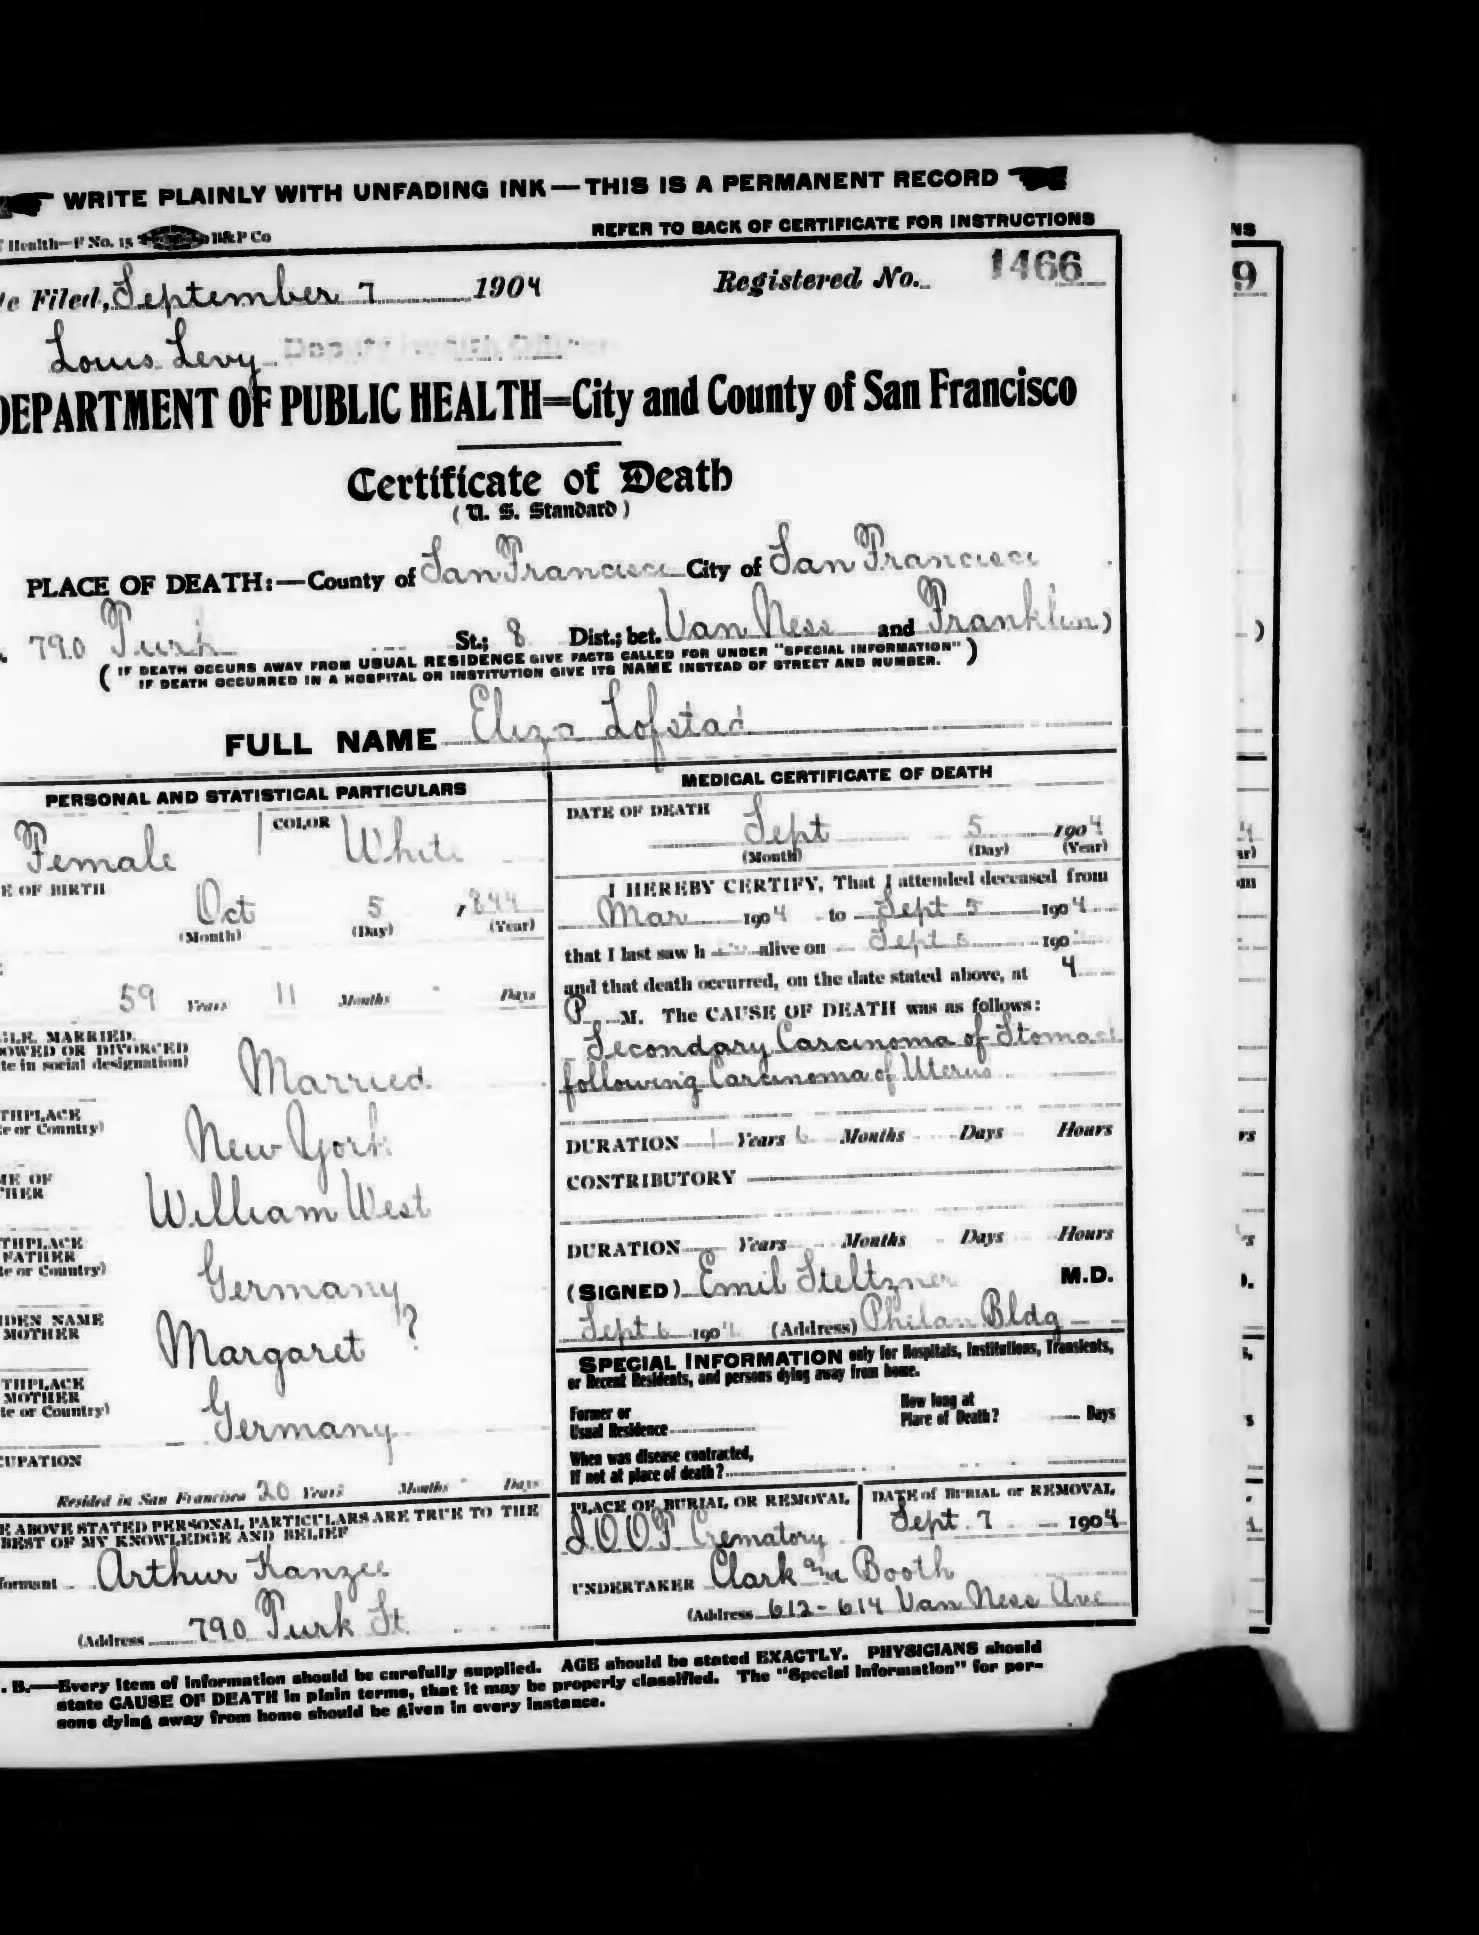 WRITE PLAINLY WITH UNFADING INK—THIS IS A PERMANENT RECORD
Health—F No. 15 B&P Co
REFER TO BACK OF CERTIFICATE FOR INSTRUCTIONS
NS
te Filed, September 7 1904
Registered No. 1466
9
Louis Levy Deputy Health Officer
DEPARTMENT OF PUBLIC HEALTH=City and County of San Francisco
Certificate of Death
(U. S. Standard)
PLACE OF DEATH:—County of San Francisco City of San Francisco
790 Turk St.; 8 Dist.; bet. Van Ness and Franklin)
)
(IF DEATH OCCURS AWAY FROM USUAL RESIDENCE GIVE FACTS CALLED FOR UNDER "SPECIAL INFORMATION"
IF DEATH OCCURRED IN A HOSPITAL OR INSTITUTION GIVE ITS NAME INSTEAD OF STREET AND NUMBER.)
FULL NAME Eliza Lofstad
PERSONAL AND STATISTICAL PARTICULARS
Female
COLOR White
E OF BIRTH
Oct 5, 1844
(Month) (Day) (Year)
59 Years 11 Months - Days
GLE, MARRIED,
OWED OR DIVORCED
te in social designation)
Married
THPLACE
te or Country)
New York
ME OF
THER
William West
THPLACE
FATHER
te or Country)
Germany
IDEN NAME
MOTHER
Margaret ?
THPLACE
MOTHER
te or Country)
Germany
CUPATION
Resided in San Francisco 20 Years Months - Days
E ABOVE STATED PERSONAL PARTICULARS ARE TRUE TO THE
BEST OF MY KNOWLEDGE AND BELIEF
formant Arthur Kanzee
(Address 790 Turk St
MEDICAL CERTIFICATE OF DEATH
DATE OF DEATH
Sept 5 1904
(Month) (Day) (Year)
I HEREBY CERTIFY, That I attended deceased from
Mar 1904 to Sept 5 1904
that I last saw h alive on Sept 5 190
and that death occurred, on the date stated above, at 4
P M. The CAUSE OF DEATH was as follows:
Secondary Carcinoma of Stomach
following Carcinoma of Uterus
DURATION 1 Years 6 Months Days Hours
CONTRIBUTORY
DURATION Years Months Days Hours
(SIGNED) Emil Steltzner M.D.
Sept 6 1904 (Address) Philan Bldg
SPECIAL INFORMATION only for Hospitals, Institutions, Transients,
or Recent Residents, and persons dying away from home.
Former or
Usual Residence
How long at
Place of Death? Days
When was disease contracted,
If not at place of death?
PLACE OF BURIAL OR REMOVAL
I O O F Crematory
DATE of BURIAL or REMOVAL
Sept. 7 1904
UNDERTAKER Clark and Booth
(Address 612-614 Van Ness Ave
. B.—Every item of information should be carefully supplied. AGE should be stated EXACTLY. PHYSICIANS should
state CAUSE OF DEATH in plain terms, that it may be properly classified. The "Special Information" for per-
sons dying away from home should be given in every instance.